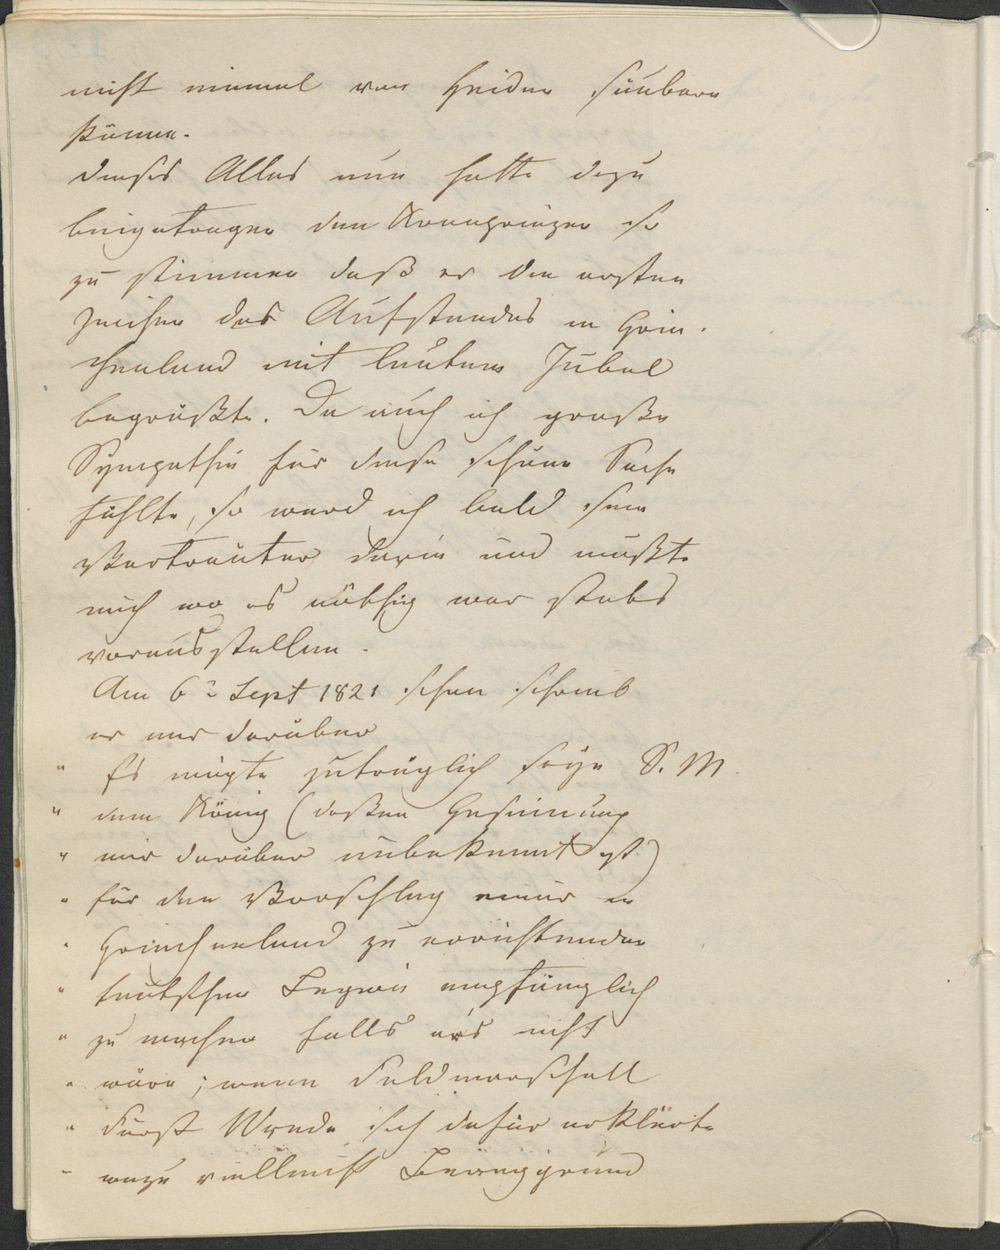 nicht einmal von Heiden säubern
könne.
Dieses Alles nun hatte dazu
beigetragen den Kronprinzen so
zu stimmen daß er die ersten
Zeichen des Aufstandes in Grie-
chenland mit lautem Jubel
begrüßte. Da auch ich große
Sympathie für diese schöne Sache
fühlte, so ward ich bald sein
Vertrauter darin und mußte
mich wo es nöthig war stets
voraus stellen.
Am 6n Sept 1821 schon schrieb
er mir darüber
" Es mögte zuträglich seyn S. M.
" dem König (deßen Gesinnung
" mir darüber unbekannt ist)
" für den Vorschlag einer in
" Griechenland zu errichtenden
" teutschen Legion empfänglich
" zu machen falls er's nicht
" wäre; wenn Feldmarschall
" Fürst Wrede sich dafür erklärte
" wozu vielleicht Beweggrund